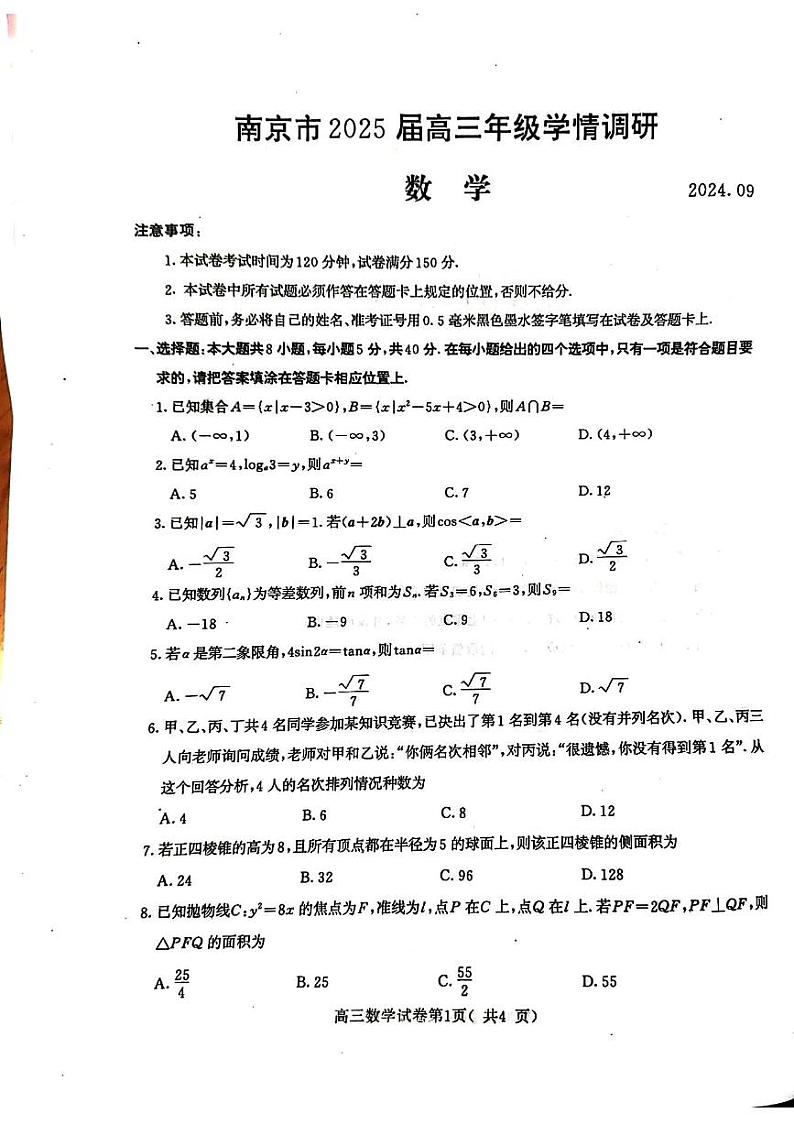 南京市 2025 届高三年级学情调研
数 学
2024.09
注意事项:
1. 本试卷考试时间为120 分钟,试卷满分150 分.
2. 本试卷中所有试题必须作答在答题卡上规定的位置,否则不给分.
3. 答题前,务必将自己的姓名、准考证号用0.5 毫米黑色墨水签字笔填写在试卷及答题卡上.
一、选择题:本大题共8 小题,每小题5 分,共40 分. 在每小题给出的四个选项中,只有一项是符合题目要
求的,请把答案填涂在答题卡相应位置上.
1. 已知集合A={x|x-3>0},B={x|x²-5x+4>0},则A∩B=
A. (-∞,1) B. (-∞,3) C. (3,+∞) D. (4,+∞)
2. 已知aˣ=4,logₐ3=y,则aˣ⁺ʸ=
A. 5 B. 6 C. 7 D. 12
3. 已知|a|=√3,|b|=1. 若(a+2b)⊥a,则cos<a,b>=
A. -√3/2 B. -√3/3 C. √3/3 D. √3/2
4. 已知数列{aₙ}为等差数列,前n 项和为Sₙ. 若S₃=6,S₆=3,则S₉=
A. -18 B. -9 C. 9 D. 18
5. 若α 是第二象限角,4sin2α=tanα,则tanα=
A. -√7 B. -√7/7 C. √7/7 D. √7
6. 甲、乙、丙、丁共4 名同学参加某知识竞赛,已决出了第1 名到第4 名(没有并列名次). 甲、乙、丙三
人向老师询问成绩,老师对甲和乙说:“你俩名次相邻”,对丙说:“很遗憾,你没有得到第1 名”. 从
这个回答分析,4 人的名次排列情况种数为
A. 4 B. 6 C. 8 D. 12
7. 若正四棱锥的高为8,且所有顶点都在半径为5 的球面上,则该正四棱锥的侧面积为
A. 24 B. 32 C. 96 D. 128
8. 已知抛物线C:y²=8x 的焦点为F,准线为l,点P 在C 上,点Q 在l 上. 若PF=2QF,PF⊥QF,则
△PFQ 的面积为
A. 25/4 B. 25 C. 55/2 D. 55
高三数学试卷第1页( 共4 页)